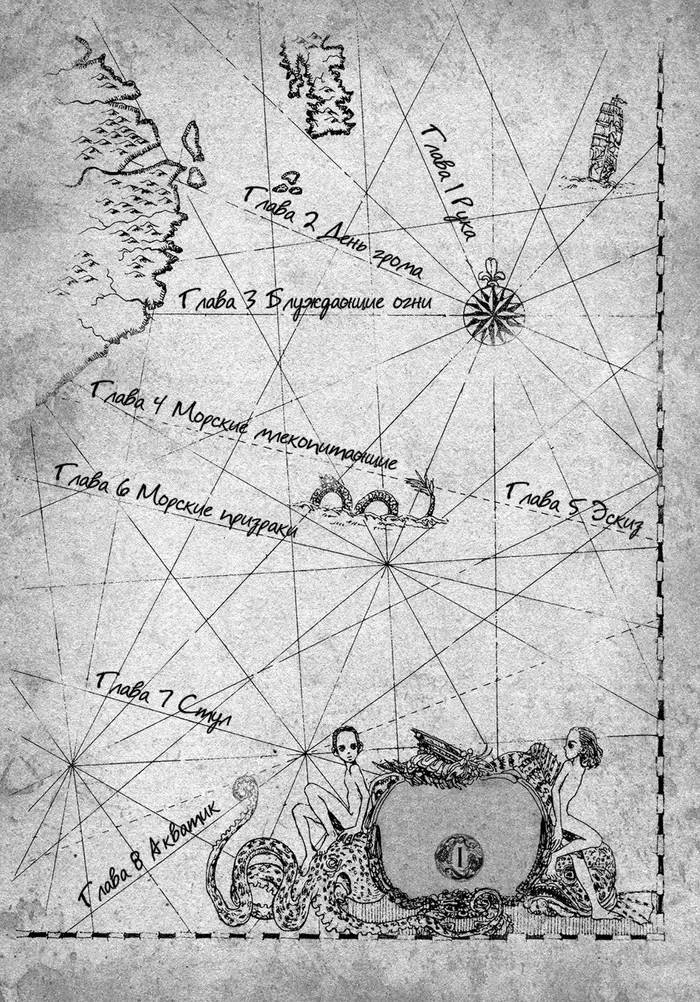 Глава 1 Рука
Глава 2 День грома
Глава 3 Блуждающие огни
Глава 4 Морские млекопитающие
Глава 5 Эскиз
Глава 6 Морские призраки
Глава 7 Стул
Глава 8 Акватик
1